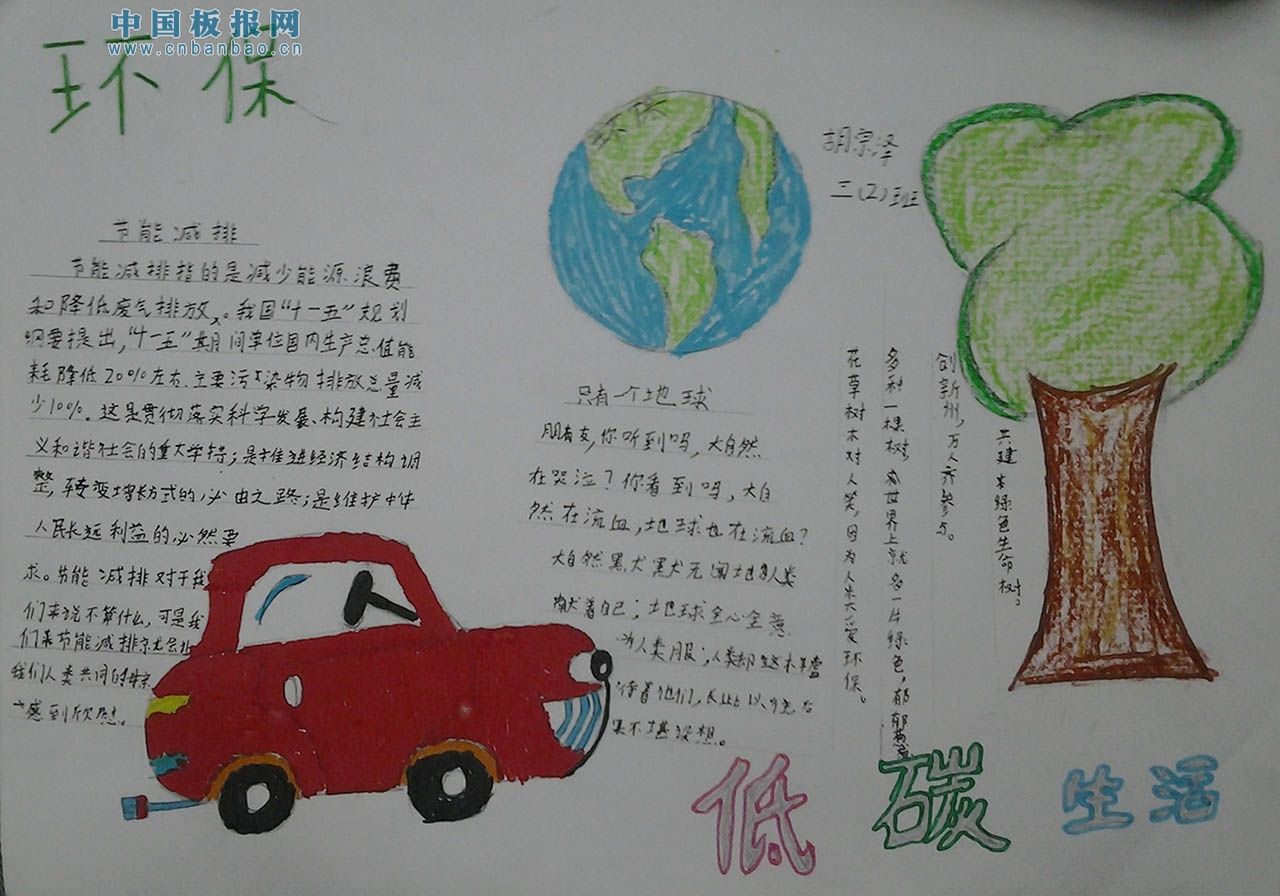 中国板报网
www.cnbanbao.cn
环保
环保
胡宗泽
三(2)班
节能减排
节能减排指的是减少能源浪费
和降低废气排放。我国“十一五”规划
纲要提出,“十一五”期间单位国内生产总值能
耗降低20%左右、主要污染物排放总量减
少10%。这是贯彻落实科学发展、构建社会主
义和谐社会的重大举措;是推进经济结构调
整,转变增长方式的必由之路;是维护中华
人民长远利益的必然要
求。节能减排对于我
们来说不算什么,可是我
们来节能减排就会让
我们人类共同的母亲
感到欣慰。
只有一个地球
朋友,你听到吗,大自然
在哭泣?你看到吗,大自
然在流血,地球也在流血?
大自然默默无闻地为人类
献着自己;地球全心全意
为人类服,人类却这木羊
待着他们,长此以往后
果不堪设想。
创新州,万人齐参与。
共建本绿色生命树。
多种一棵树,世界上就多一片绿色,郁郁葱
花草树木对人笑,因为人木大爱环保。
低碳生活